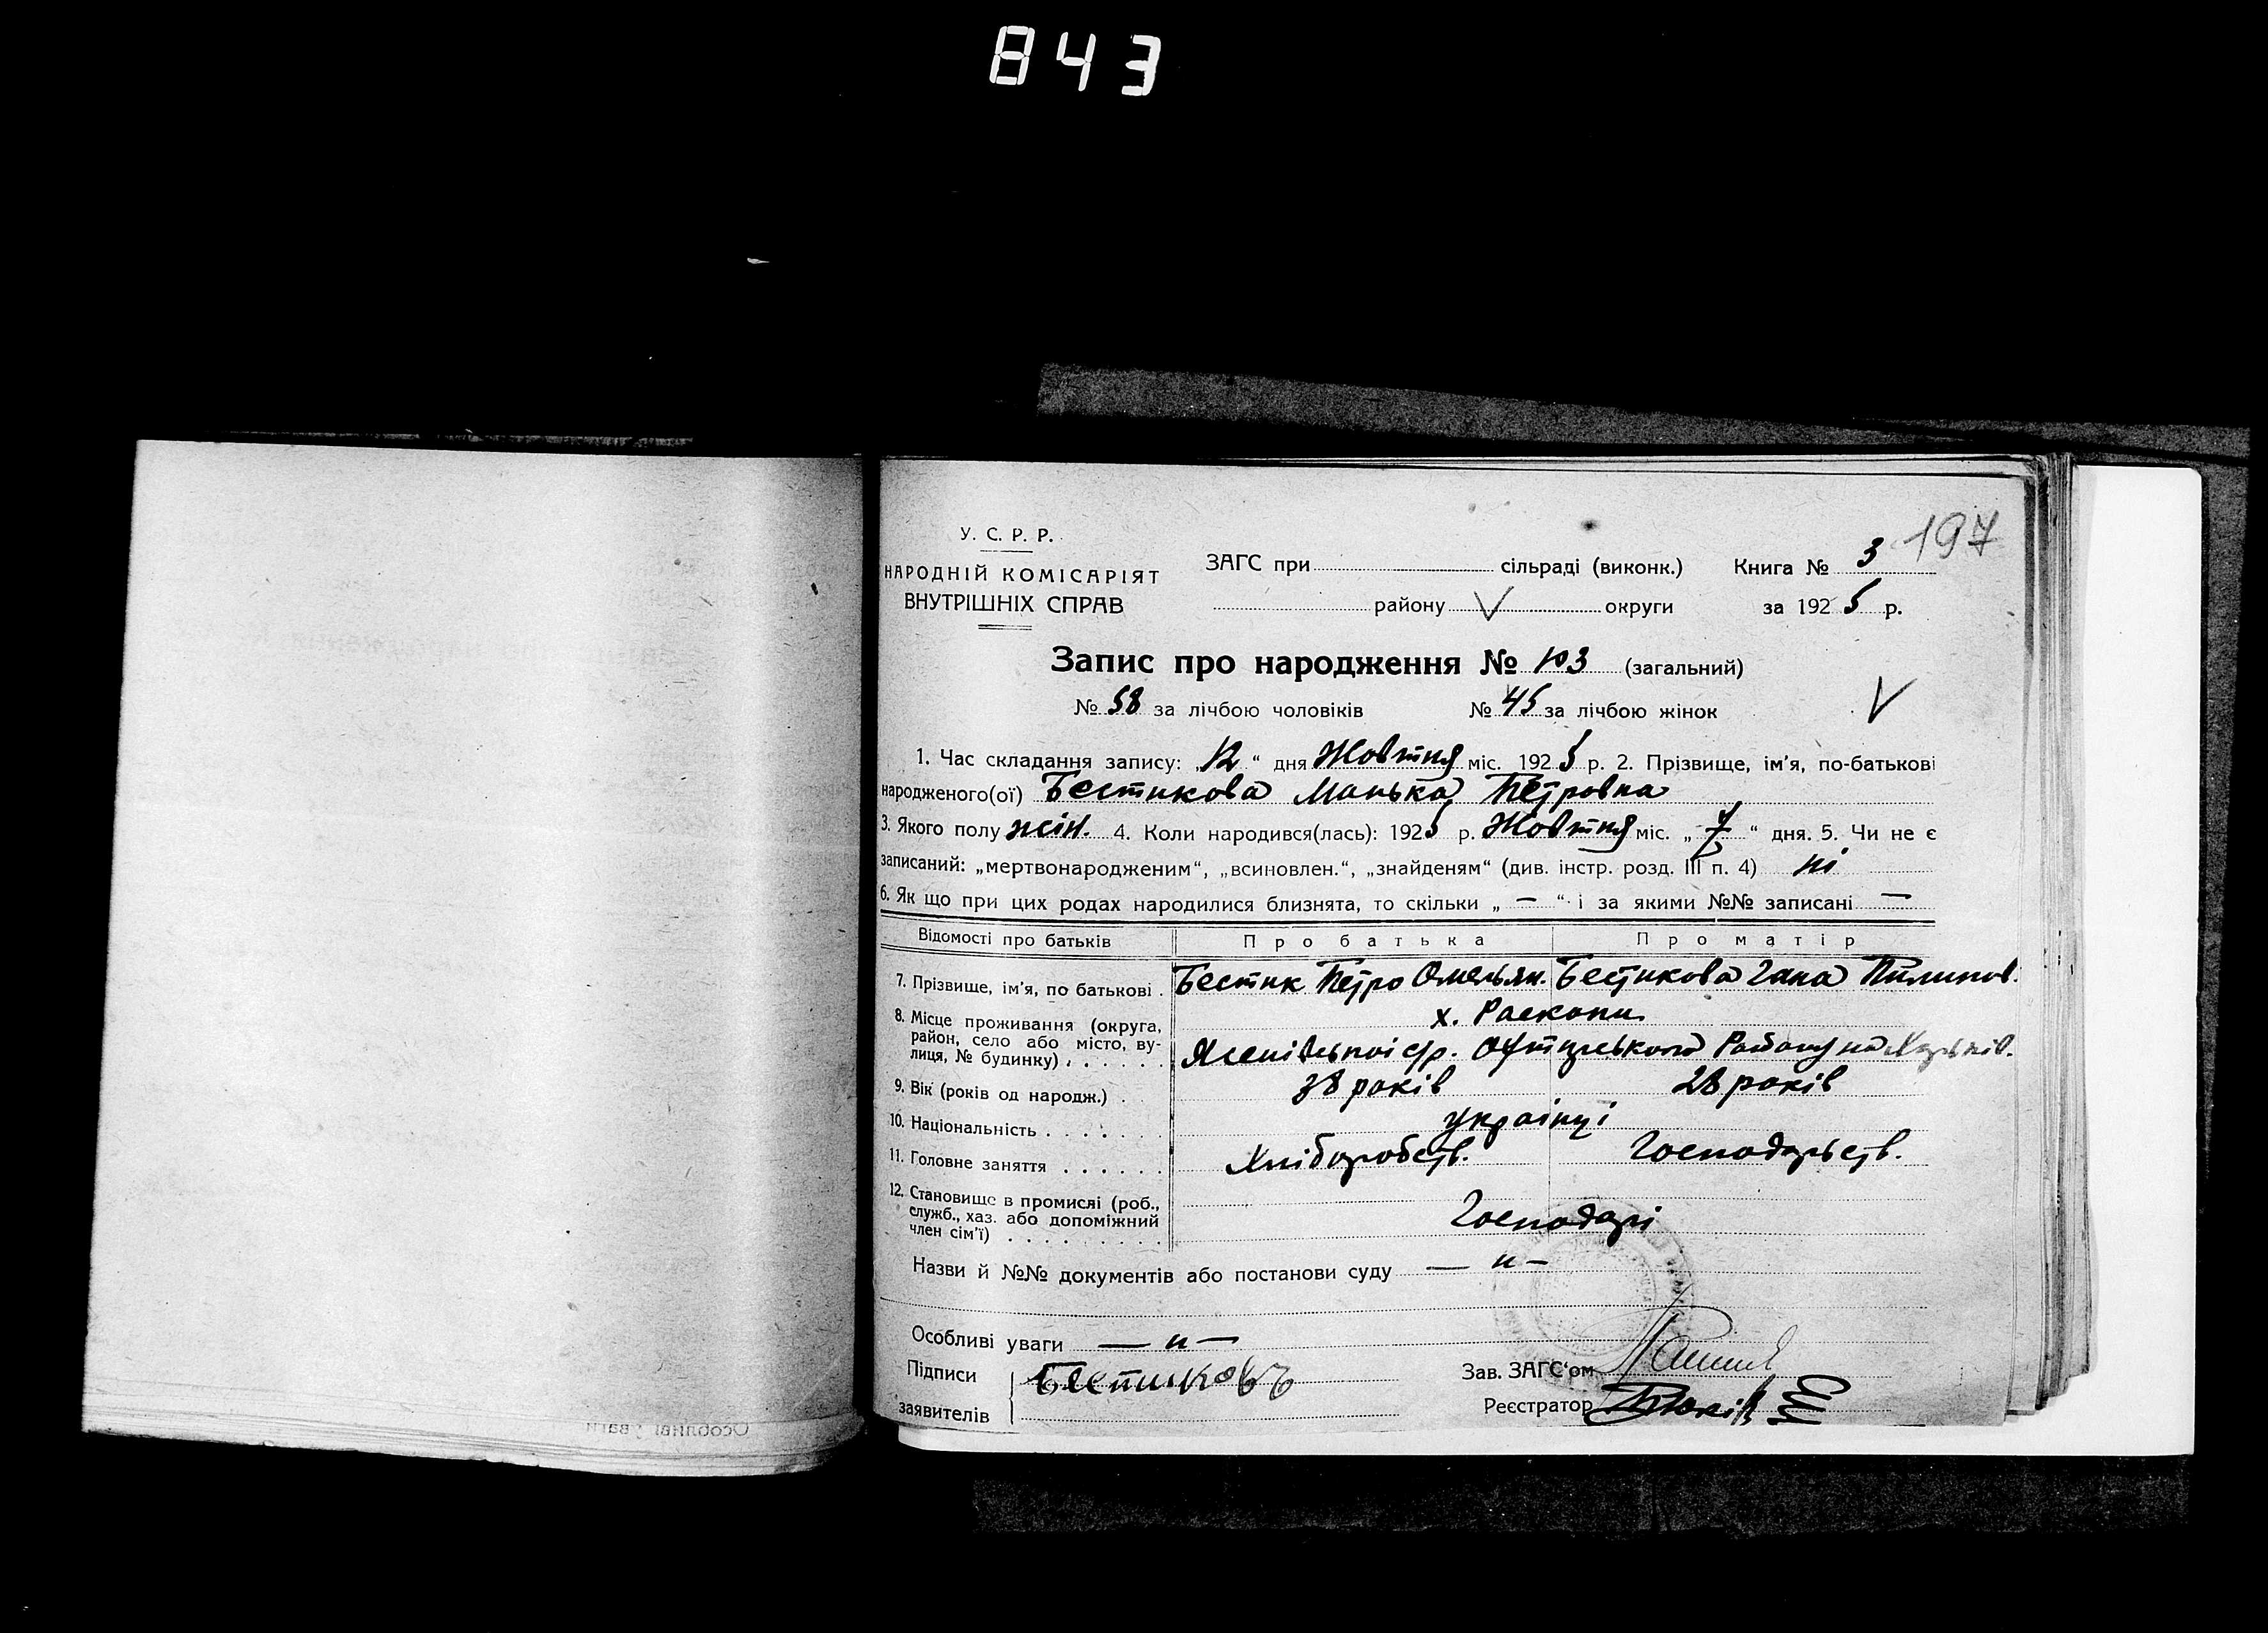 843
197
У. С. Р. Р.
НАРОДНІЙ КОМІСАРІЯТ
ВНУТРІШНІХ СПРАВ
ЗАГС при сільраді (виконк.)
району V округи
Книга № 3
за 1925 р.
Запис про народження № 103 (загальний)
№ 58 за лічбою чоловіків № 45 за лічбою жінок V
1. Час складання запису: „12“ дня Жовтня міс. 1925 р. 2. Прізвище, ім'я, по-батькові
народженого(ої) Бестикова Манька Петровна
3. Якого полу жін. 4. Коли народився(лась): 1925 р. Жовтня міс. „7“ дня. 5. Чи не є
записаний: „мертвонародженим“, „всиновлен.“, „знайденям“ (див. інстр. розд. III п. 4) ні
6. Як що при цих родах народилися близнята, то скільки „ — “ і за якими №№ записані —
Відомості про батьків Про батька Про матір
7. Прізвище, ім'я, по батькові . Бестик Петро Омельян. Бестикова Гана Пилипов.
8. Місце проживання (округа,
район, село або місто, вулиця, № будинку) . . . . . .
х. Раскопи
Району на
9. Вік (років од народж.) . 38 років 28 років
10. Національність . . . . . . українці
11. Головне заняття . . . . . . Хліборобств. Господарств.
12. Становище в промислі (роб.,
служб., хаз. або допоміжний
член сім'ї) . . . . . . . . . Господарі
Назви й №№ документів або постанови суду — „ —
Особливі уваги — „ —
Підписи
заявителів
Бестиковъ
Зав. ЗАГС'ом
Реєстратор
Особливі уваги